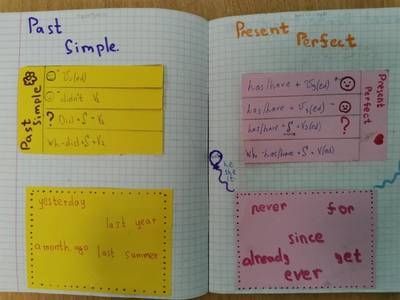 Past
Simple.
Past Simple
V2(ed)
didn't V1
? Did + S + V1
Wh-did + S + V1
yesterday
last year
a month ago last summer
Present
Perfect
has/have + V3(ed) +
has/have + V3(ed) -
has/have + S + V3(ed) ?
Wh-has/have + S + V(ed)
Present Perfect
he
she
it
never for
since
already yet
ever